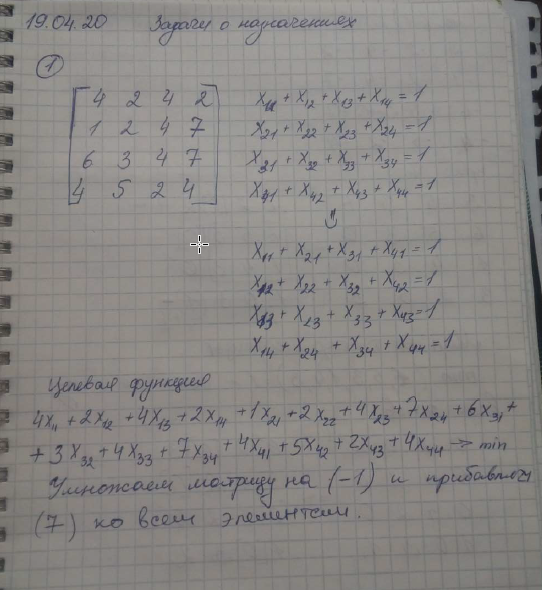 19.04.20 Задачи о назначениях
1
4 2 4 2
1 2 4 7
6 3 4 7
4 5 2 4
x₁₁ + x₁₂ + x₁₃ + x₁₄ = 1
x₂₁ + x₂₂ + x₂₃ + x₂₄ = 1
x₃₁ + x₃₂ + x₃₃ + x₃₄ = 1
x₄₁ + x₄₂ + x₄₃ + x₄₄ = 1
x₁₁ + x₂₁ + x₃₁ + x₄₁ = 1
x₁₂ + x₂₂ + x₃₂ + x₄₂ = 1
x₁₃ + x₂₃ + x₃₃ + x₄₃ = 1
x₁₄ + x₂₄ + x₃₄ + x₄₄ = 1
Целевая функция
4x₁₁ + 2x₁₂ + 4x₁₃ + 2x₁₄ + 1x₂₁ + 2x₂₂ + 4x₂₃ + 7x₂₄ + 6x₃₁ +
+ 3x₃₂ + 4x₃₃ + 7x₃₄ + 4x₄₁ + 5x₄₂ + 2x₄₃ + 4x₄₄ → min
Умножаем матрицу на (-1) и прибавляем
(7) ко всем элементам.